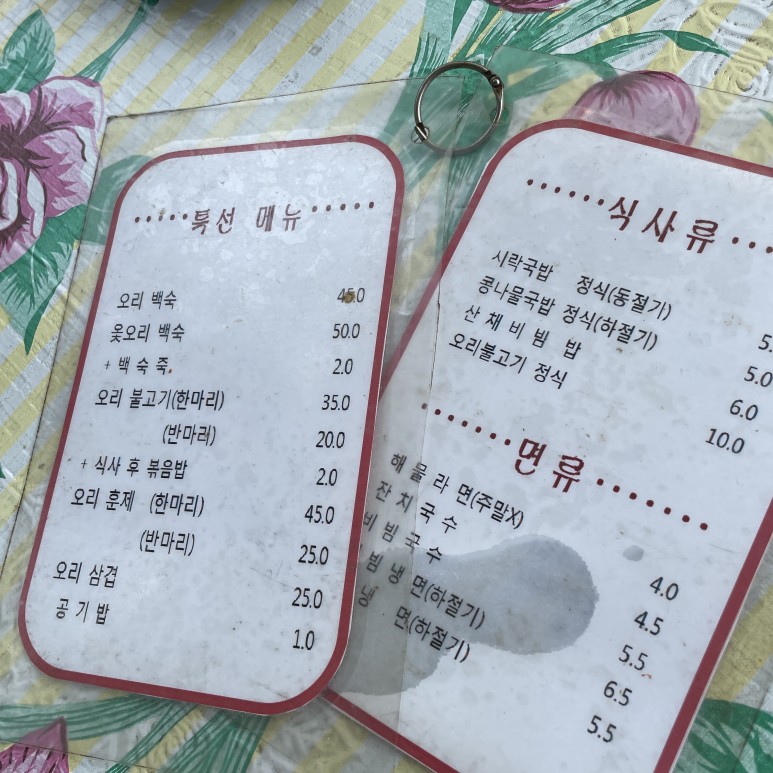 ······특선 메뉴······
오리 백숙 45.0
옻오리 백숙 50.0
+ 백숙죽 2.0
오리 불고기(한마리) 35.0
(반마리) 20.0
+ 식사 후 볶음밥 2.0
오리 훈제 (한마리) 45.0
(반마리) 25.0
오리 삼겹 25.0
공기밥 1.0
······식사류···
시락국밥 정식(동절기)
콩나물국밥 정식(하절기) 5.0
산채비빔밥 6.0
오리불고기 정식 10.0
·······면류·······
해물라면(주말X) 4.0
잔치국수 4.5
비빔국수 5.5
빔냉면(하절기) 6.5
면(하절기) 5.5